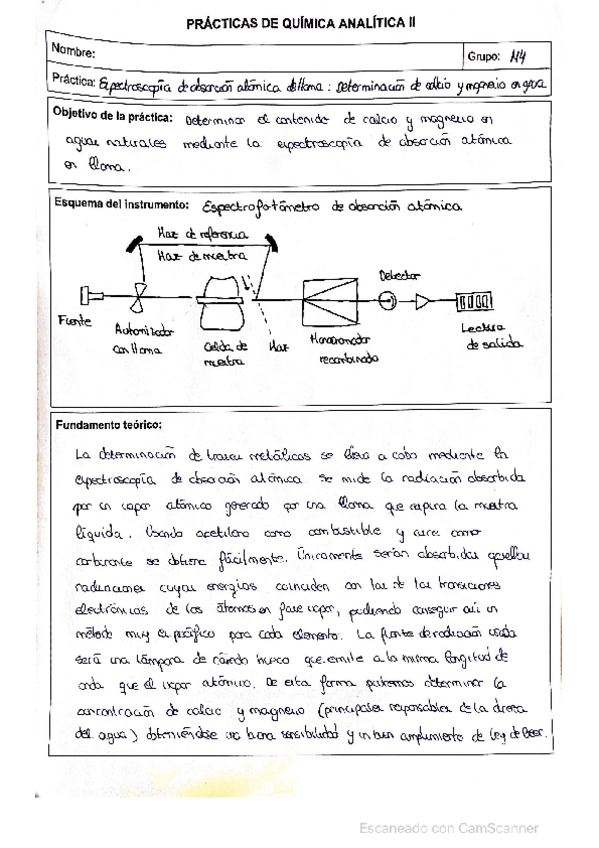 PRÁCTICAS DE QUÍMICA ANALÍTICA II
Nombre:
Grupo: N4
Práctica: Espectroscopía de absorción atómica de llama: Determinación de calcio y magnesio en agua
Objetivo de la práctica: Determinar el contenido de calcio y magnesio en
aguas naturales mediante la espectroscopía de absorción atómica
en llama.
Esquema del instrumento: Espectrofotómetro de absorción atómica
Haz de referencia
Haz de muestra
Detector
Fuente
Atomizador
con llama
Celda de
muestra
Haz
Monocromador
recombinado
Lectura
de salida
Fundamento teórico:
La determinación de trazas metálicas se lleva a cabo mediante la
espectroscopía de absorción atómica. Se mide la radiación absorbida
por un vapor atómico generado por una llama que la muestra
líquida. Usando acetileno como combustible y aire como
se obtiene fácilmente. Únicamente serán absorbidas aquellas
radiaciones cuyas energías coinciden con las de las transiciones
electrónicas de los átomos en fase vapor, pudiendo conseguir así un
método muy específico para cada elemento. La fuente de radiación usada
será una lámpara de cátodo hueco que emite a la misma longitud de
onda que el vapor atómico. De esta forma podemos determinar la
concentración de calcio y magnesio (principales responsables de la dureza
del agua) obteniéndose una buena sensibilidad y un buen cumplimiento de ley de Beer.
Escaneado con CamScanner